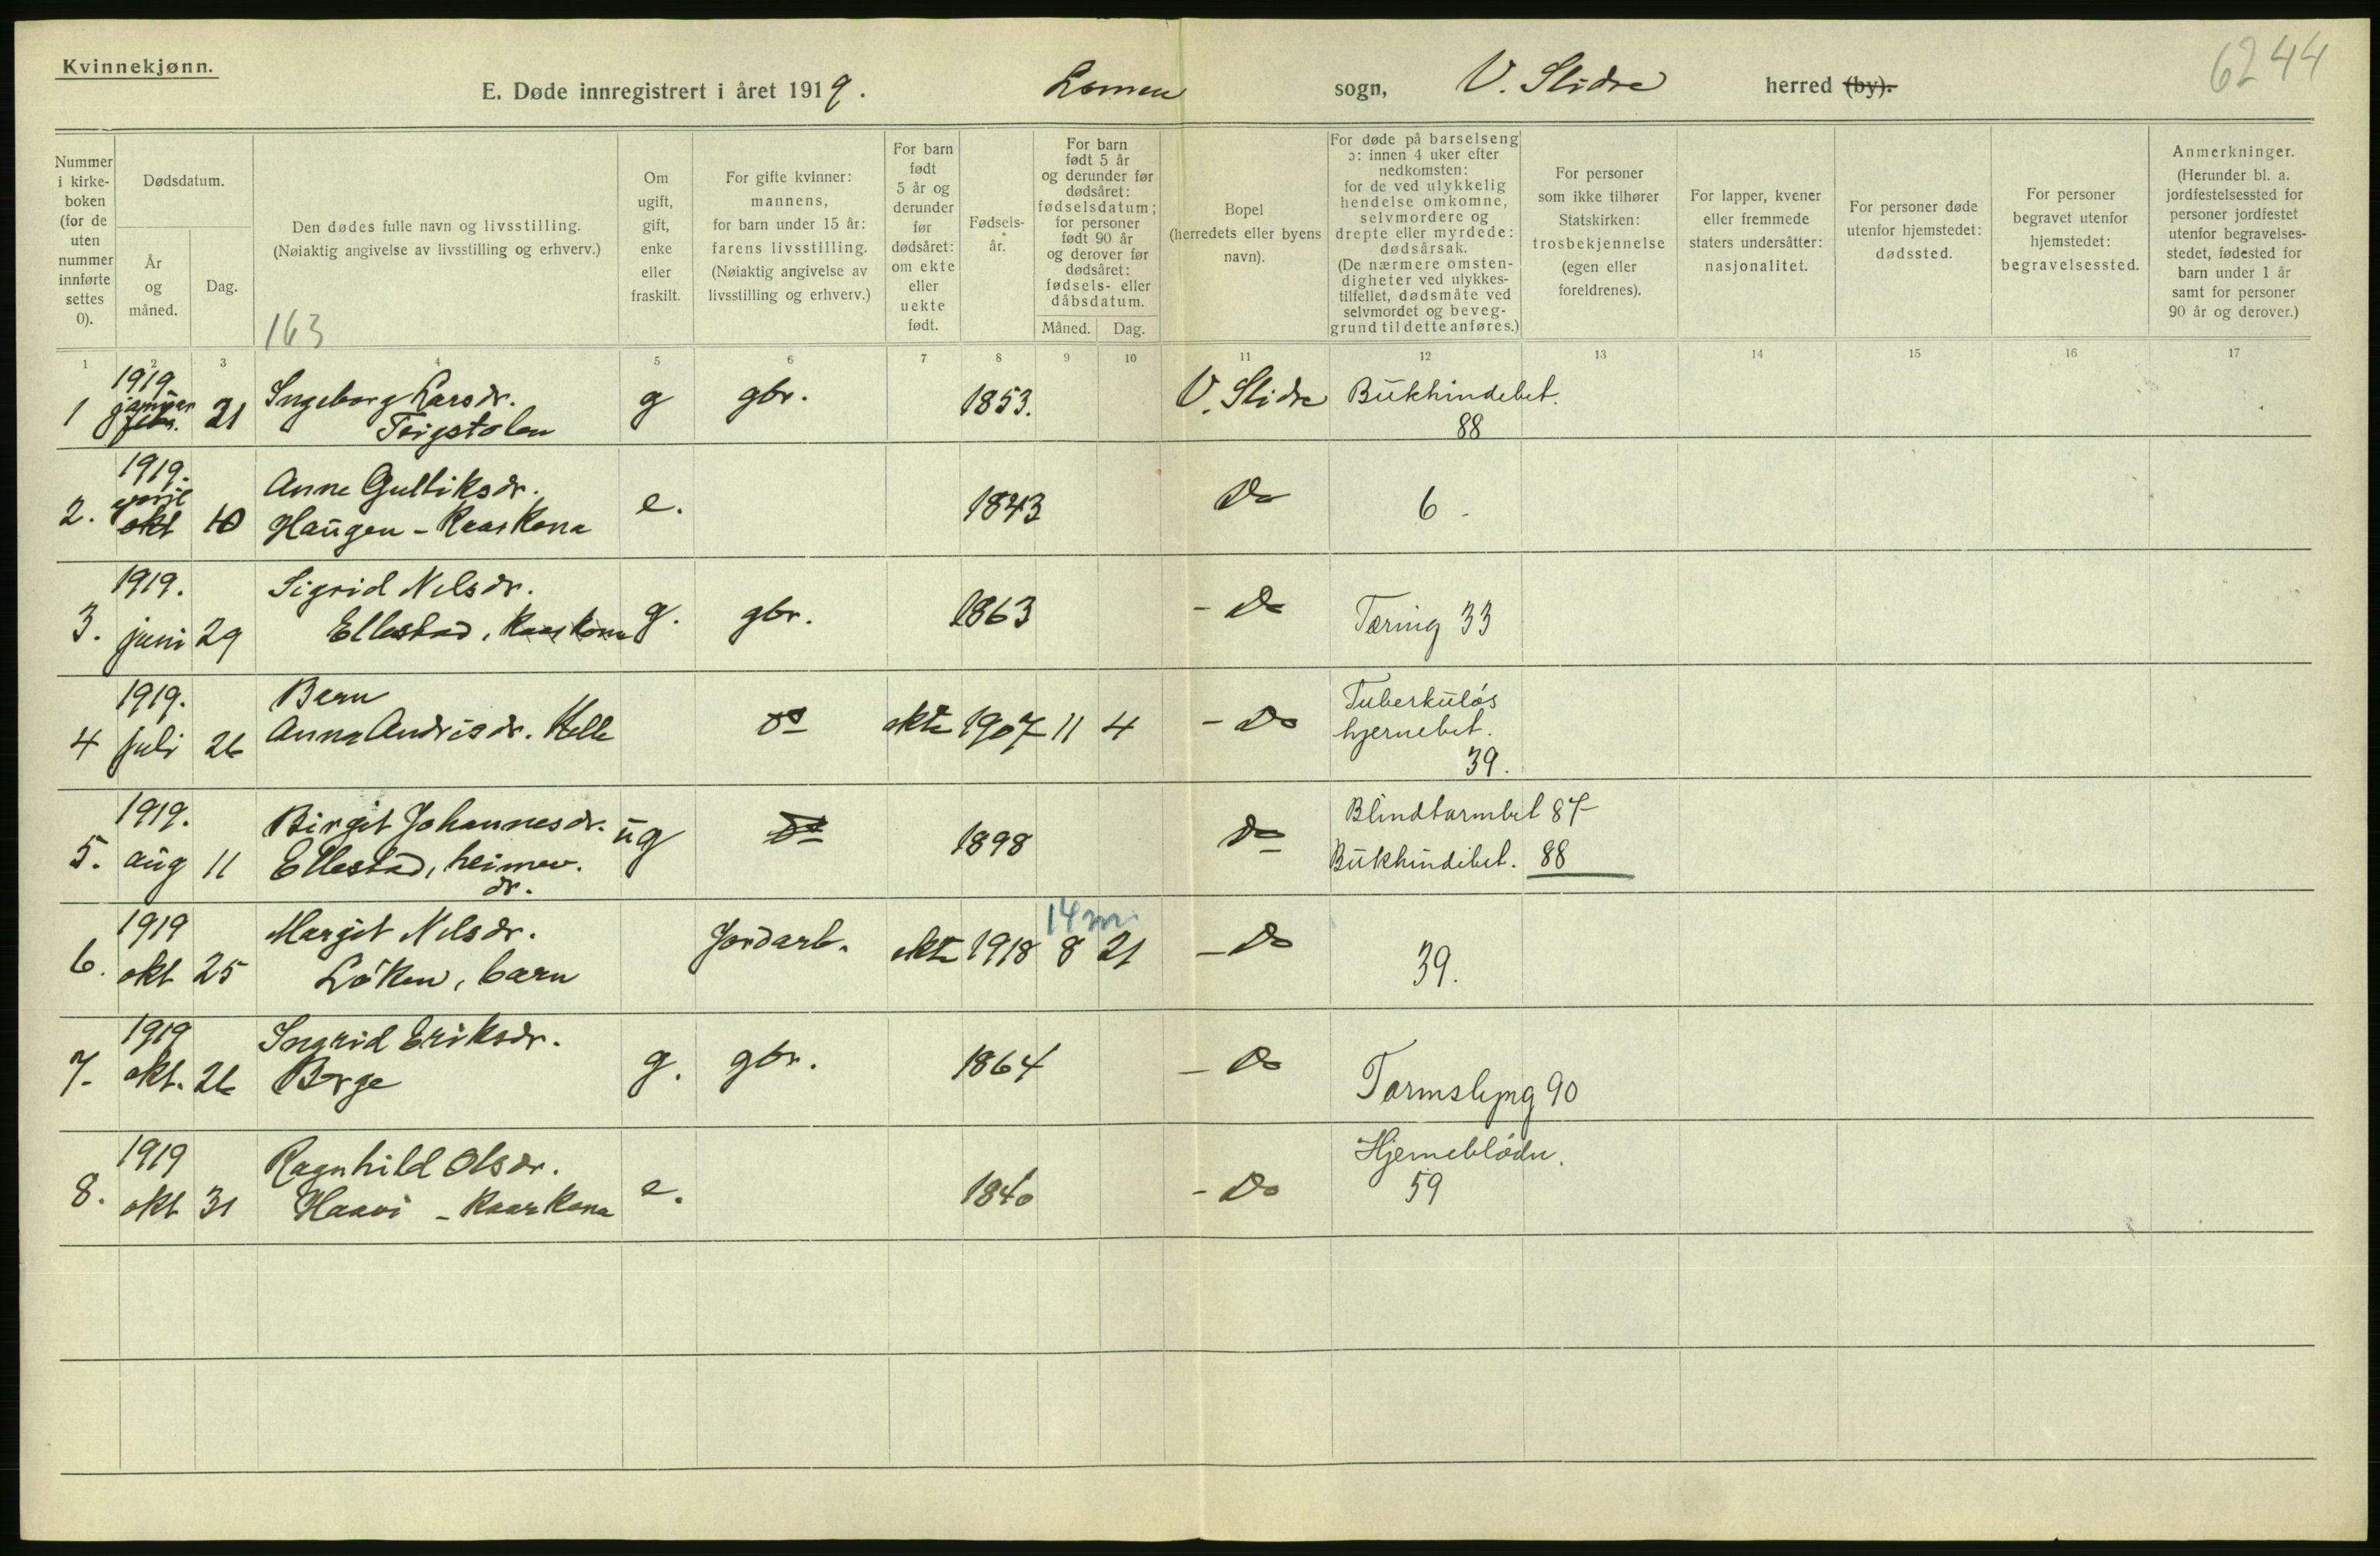 Kvinnekjønn.
6244
E. Døde innregistrert i året 1919. Lomen sogn, V. Slidre herred (by).
Nummer i kirkeboken (for de uten nummer innførte settes 0).
Dødsdatum.
År og måned.
Dag.
Den dødes fulle navn og livsstilling.
(Nøiaktig angivelse av livsstilling og erhverv.)
163
Om ugift, gift, enke eller fraskilt.
For gifte kvinner: mannens, for barn under 15 år: farens livsstilling. (Nøiaktig angivelse av livsstilling og erhverv.)
For barn født 5 år og derunder før dødsåret: om ekte eller uekte født.
Fødselsår.
For barn født 5 år og derunder før dødsåret: fødselsdatum; for personer født 90 år og derover før dødsåret: fødsels- eller dåbsdatum.
Måned. Dag.
Bopel (herredets eller byens navn).
For døde på barselseng ɔ: innen 4 uker efter nedkomsten: for de ved ulykkelig hendelse omkomne, selvmordere og drepte eller myrdede: dødsårsak. (De nærmere omstendigheter ved ulykkestilfellet, dødsmåte ved selvmordet og beveggrund til dette anføres.)
For personer som ikke tilhører Statskirken: trosbekjennelse (egen eller foreldrenes).
For lapper, kvener eller fremmede staters undersåtter: nasjonalitet.
For personer døde utenfor hjemstedet: dødssted.
For personer begravet utenfor hjemstedet: begravelsessted.
Anmerkninger. (Herunder bl. a. jordfestelsessted for personer jordfestet utenfor begravelsesstedet, fødested for barn under 1 år samt for personer 90 år og derover.)
1 2 3 4 5 6 7 8 9 10 11 12 13 14 15 16 17
1 1919. januar febr. 21 Ingeborg Larsdr. g gbr. 1853. V. Slidre Bukhindebet.
88
2. 1919. okt 10 Anne Gulliksdr.
Haugen - Kaarkona e. 1843 Do 6.
3. 1919. juni 29 Sigrid Nilsdr.
Ellestad, Kaarkona g. gbr. 1863 - Do Tæring 33
4 1919. juli 26 Barn
Anna Andrisdr. Helle do ekte 1907 11 4 - Do Tuberkuløs
hjernebet.
39.
5. 1919. aug 11 Birgit Johannesdr.
Ellestad, heimev. dr. ug do 1898 Do Blindtarmbet 87
Bukhindebet. 88
6. 1919 okt 25 Margit Nilsdr.
Løken, barn Jordarb. ekte 1918 14 m 8 21 - Do 39.
7. 1919 okt. 26 Ingrid Eriksdr.
Børge g. gbr. 1864 - Do Tarmslyng 90
8. 1919 okt 31 Ragnhild Olsdr.
Haavi - Kaarkona e. 1840 - Do Hjerneblødn.
59